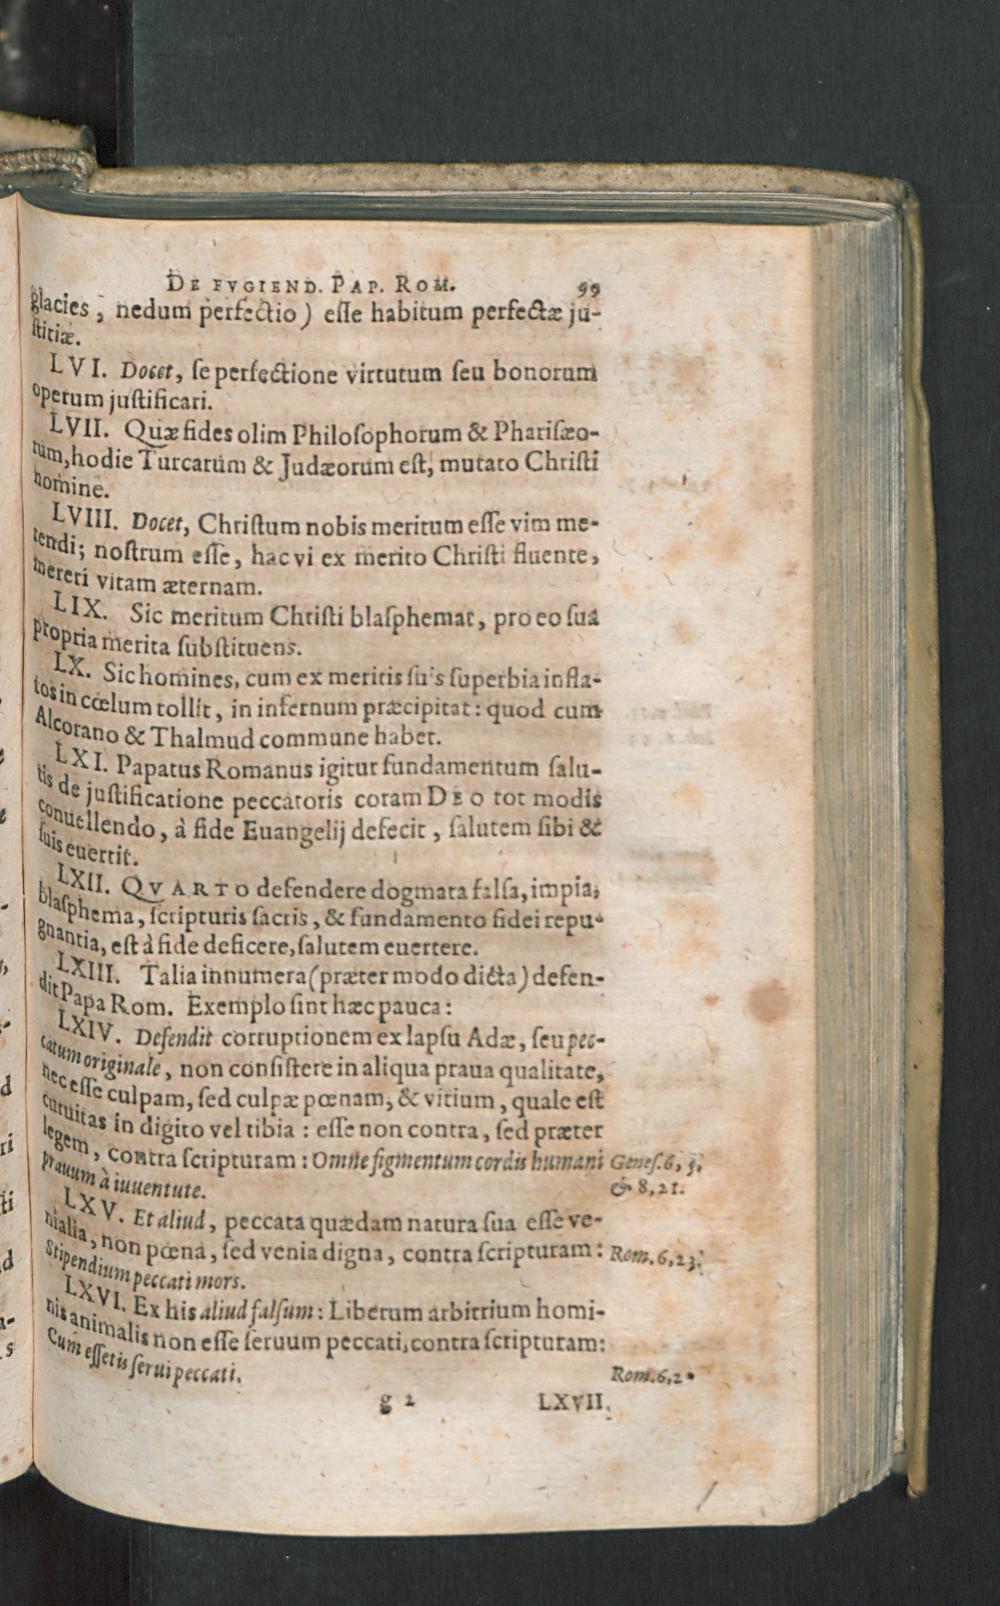 DE FVGIEND. PAP. ROM. 99
glacies, nedum perfectio) eſſe habitum perfectæ ju-
ſtitiæ.
LVI. Docet, ſe perfectione virtutum ſeu bonorum
operum juſtificari.
LVII. Quæ fides olim Philoſophorum & Phariſæo-
rum, hodie Turcarum & Judæorum eſt, mutato Chriſti
nomine.
LVIII. Docet, Chriſtum nobis meritum eſſe vim me-
rendi; noſtrum eſſe, hac vi ex merito Chriſti fluente,
mereri vitam æternam.
LIX. Sic meritum Chriſti blaſphemat, pro eo ſua
propria merita ſubſtituens.
LX. Sic homines, cum ex meritis ſuis ſuperbia infla-
tos in cœlum tollit, in infernum præcipitat: quod cum
Alcorano & Thalmud commune habet.
LXI. Papatus Romanus igitur fundamentum ſalu-
tis de juſtificatione peccatoris coram DEO tot modis
conuellendo, à fide Euangelij defecit, ſalutem ſibi &
ſuis euertit.
LXII. QVARTO defendere dogmata falſa, impia,
blaſphema, ſcripturis ſacris, & fundamento fidei repu-
gnantia, eſt à fide deficere, ſalutem euertere.
LXIII. Talia innumera (præter modo dicta) defen-
dit Papa Rom. Exemplo ſint hæc pauca:
LXIV. Defendit corruptionem ex lapſu Adæ, ſeu pec-
catum originale, non conſiſtere in aliqua praua qualitate,
nec eſſe culpam, ſed culpæ pœnam, & vitium, quale eſt
curuitas in digito vel tibia: eſſe non contra, ſed præter
legem, contra ſcripturam: Omne figmentum cordis humani Geneſ. 6, 5.
prauum à iuuentute. & 8, 21.
LXV. Et aliud, peccata quædam natura ſua eſſe ve-
nialia, non pœna, ſed venia digna, contra ſcripturam: Rom. 6, 23.
Stipendium peccati mors.
LXVI. Ex his aliud falſum: Liberum arbitrium homi-
nis animalis non eſſe ſeruum peccati, contra ſcripturam:
Cum eſſetis ſerui peccati. Rom. 6, 2
g 2 LXVII.